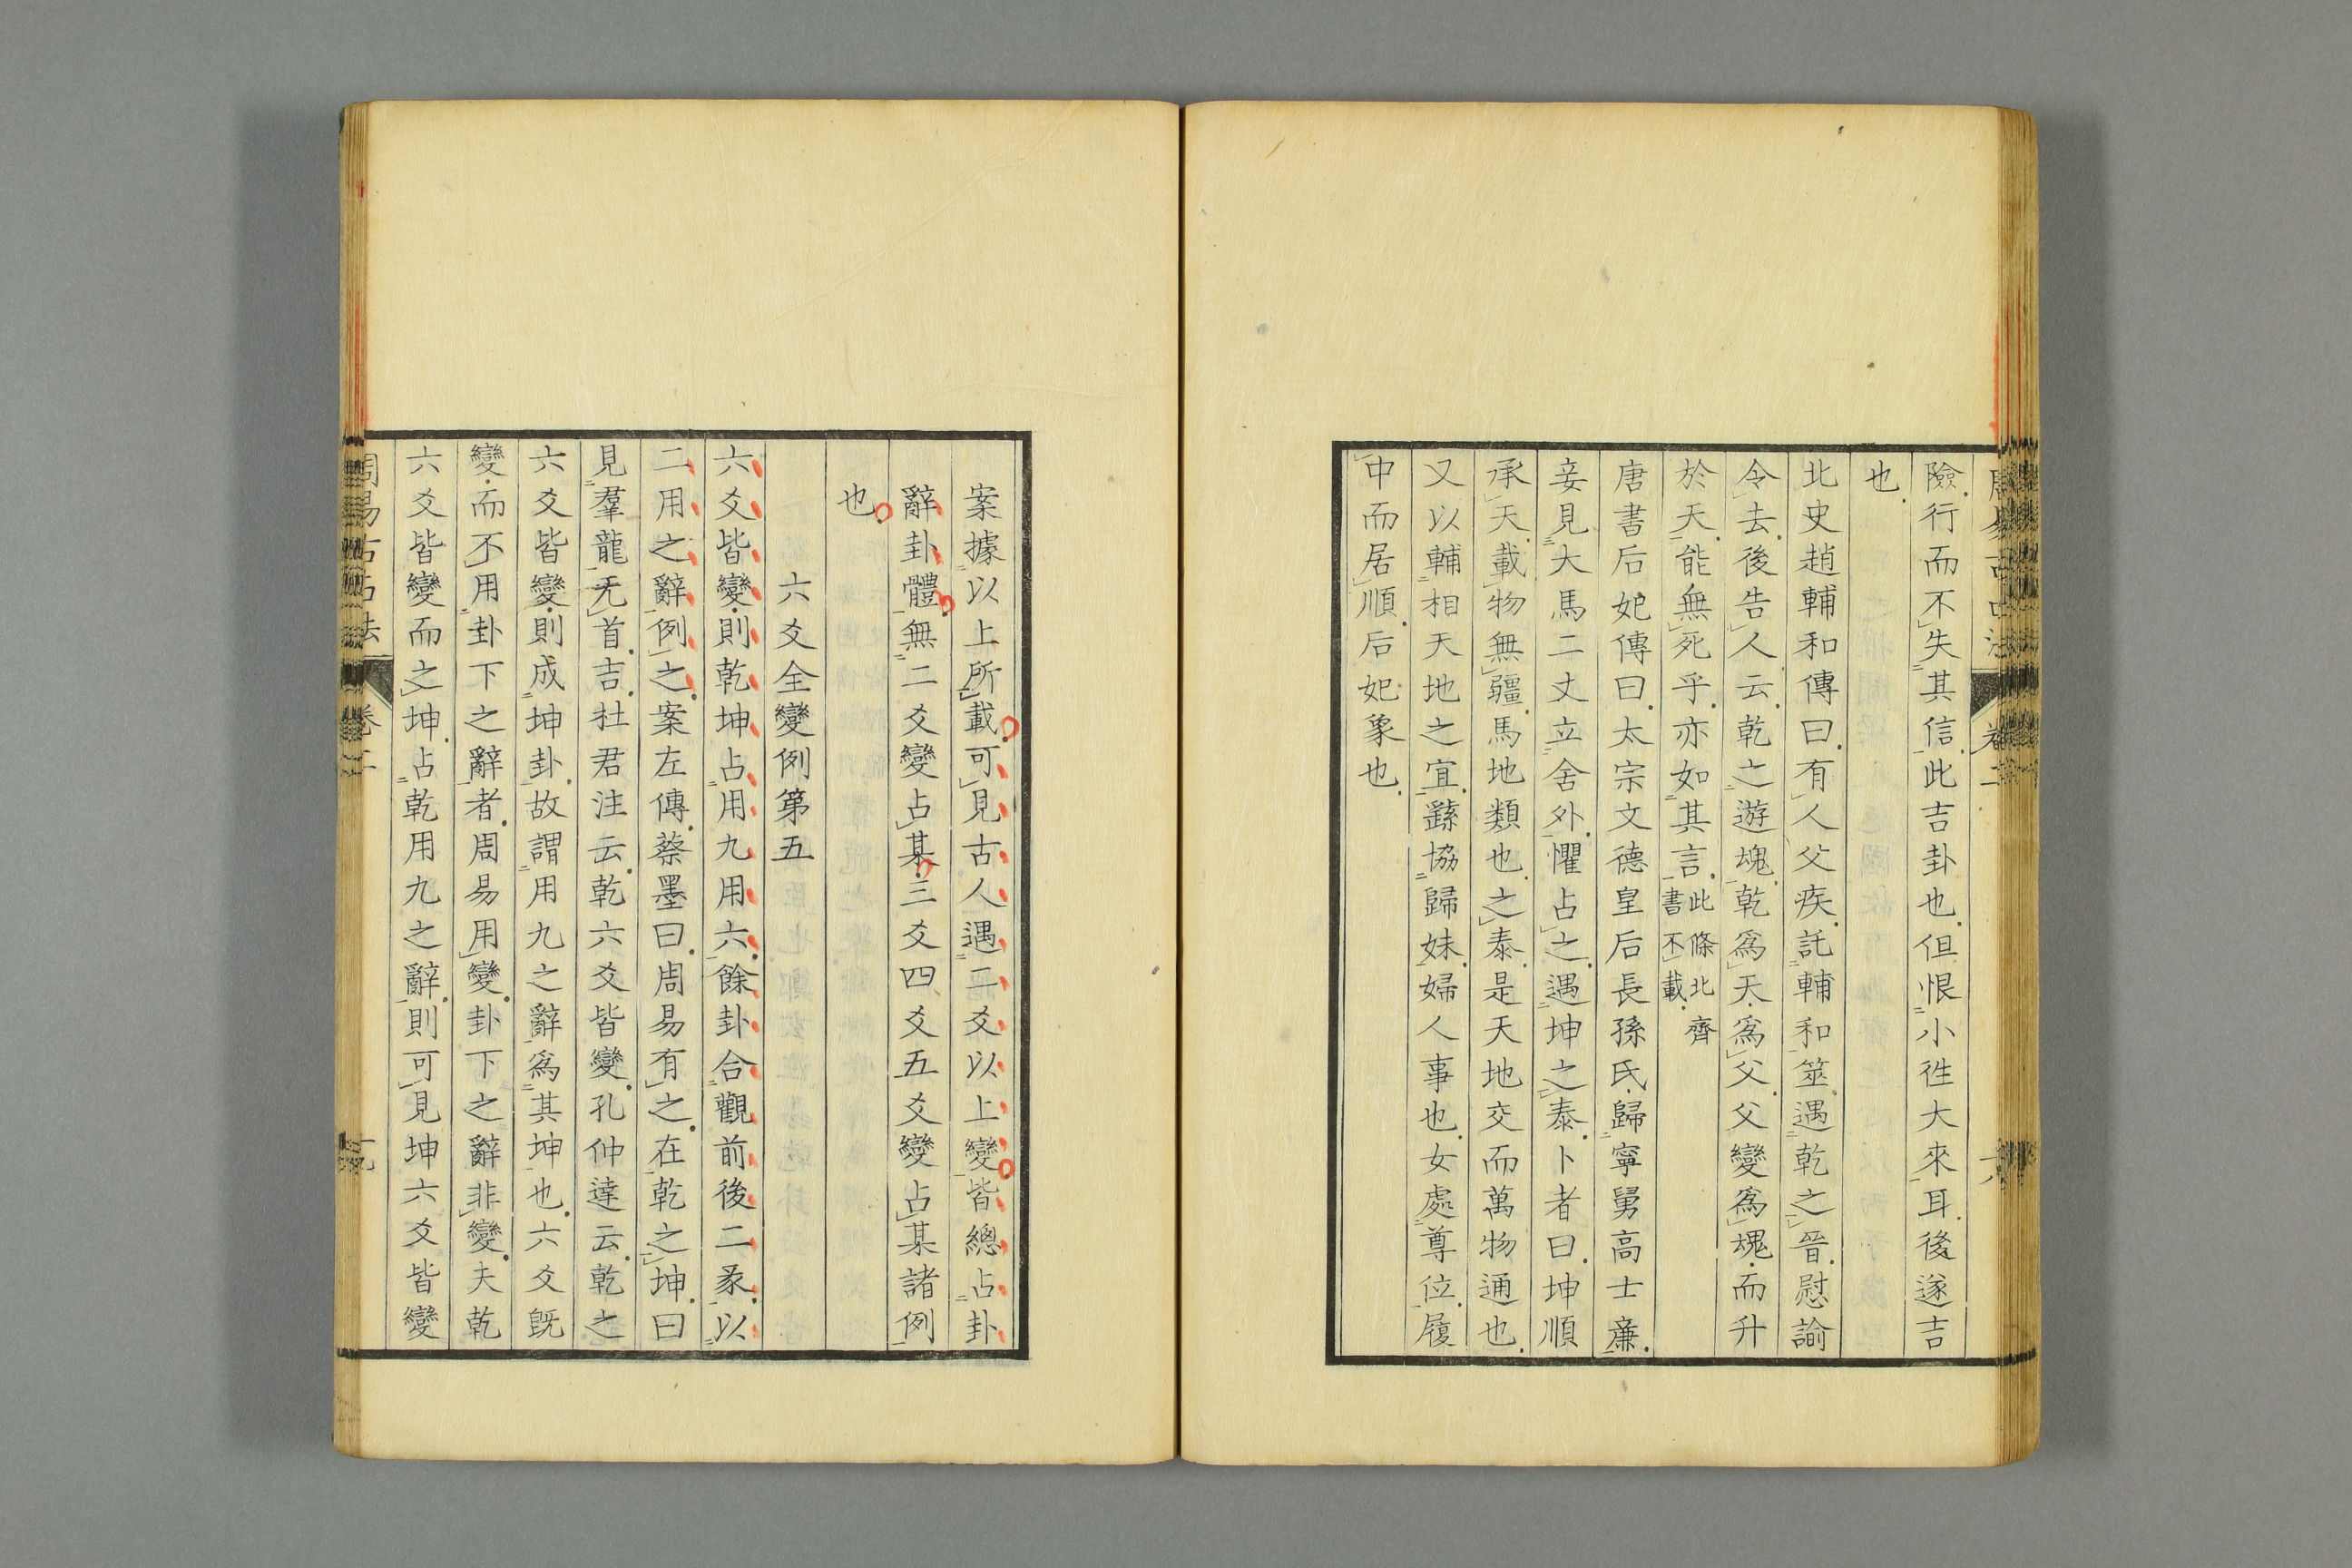 險行而不失其信此吉卦也但恨小徃大來耳後遂吉
也
北史趙輔和傳曰有人父疾託輔和筮遇乾之晉慰諭
令去後告人云乾之遊魂乾爲天爲父父變爲魂而升
於天能無死乎亦如其言此條北齊書不載
唐書后妃傳曰太宗文德皇后長孫氏歸寧舅高士廉
妾見大馬二丈立舍外懼占之遇坤之泰卜者曰坤順
承天載物無疆馬地類也之泰是天地交而萬物通也
又以輔相天地之宜繇協歸妹婦人事也女處尊位履
中而居順后妃象也
案據以上所載可見古人遇二爻以上變皆總占卦
辭卦體無二爻變占某三爻四爻五爻變占某諸例
也
六爻全變例第五
六爻皆變則乾坤占用九用六餘卦合觀前後二彖以
二用之辭例之案左傳蔡墨曰周易有之在乾之坤曰
見羣龍无首吉杜君注云乾六爻皆變孔仲達云乾之
六爻皆變則成坤卦故謂用九之辭爲其坤也六爻旣
變而不用卦下之辭者周易用變卦下之辭非變夫乾
六爻皆變而之坤占乾用九之辭則可見坤六爻皆變
周易古占法 卷二